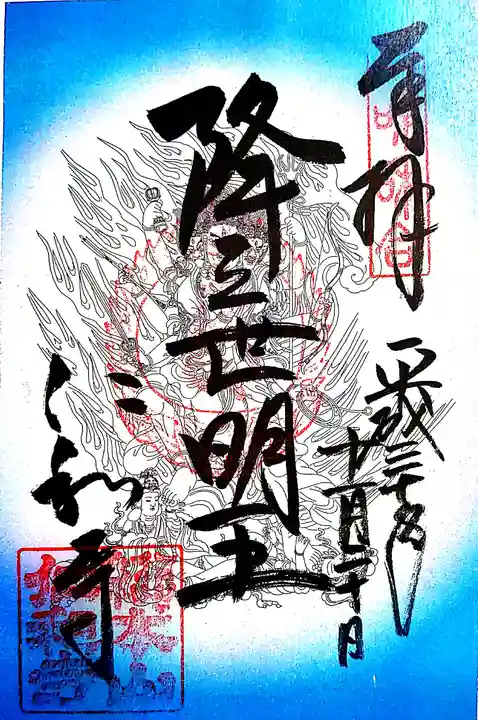 奉拝
平成三十年
十一月二十日
降三世明王
仁和寺